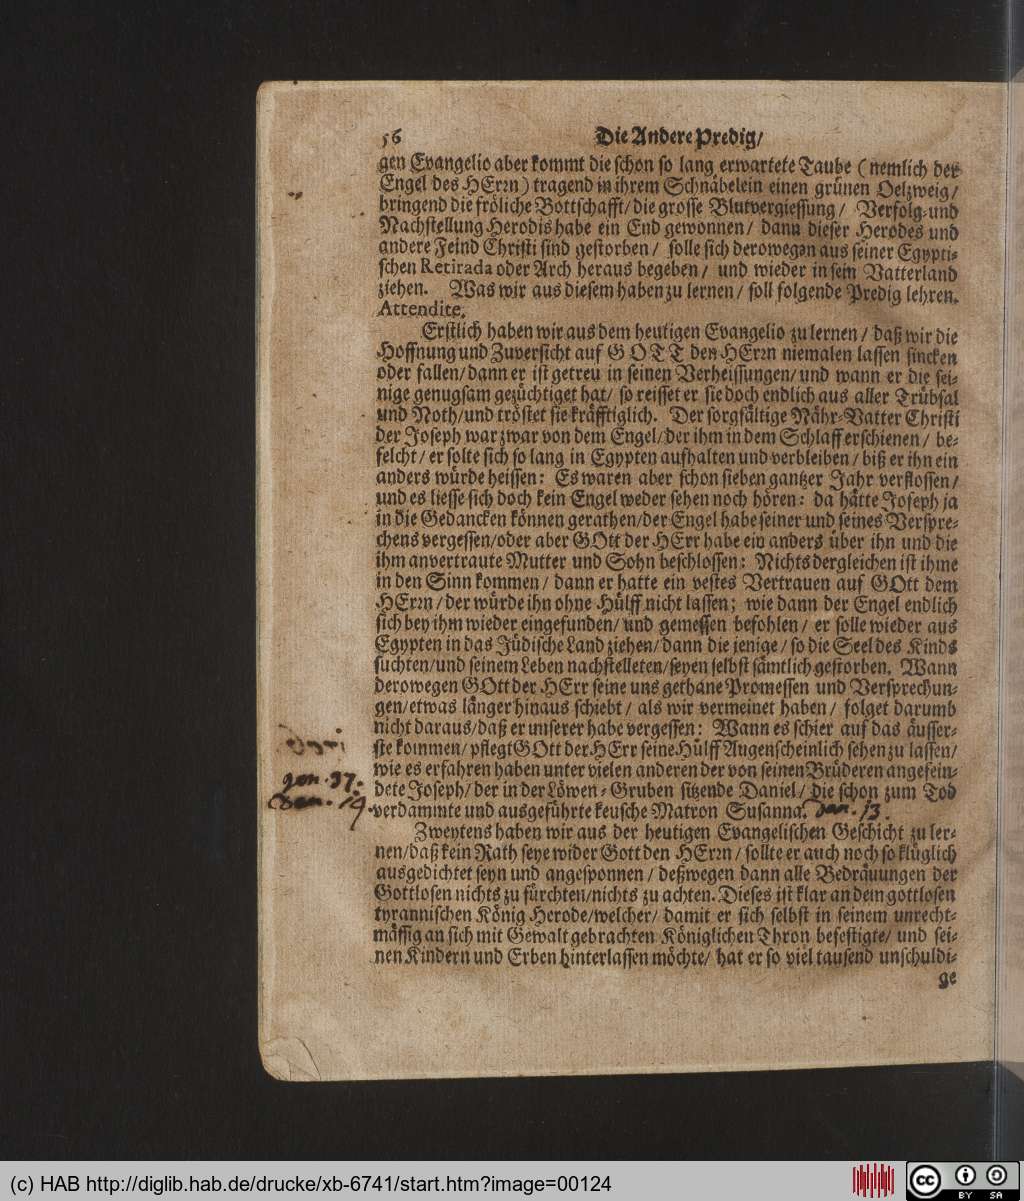 56 Die Andere Predig/
gen Evangelio aber kommt die schon so lang erwartete Taube (nemlich der
Engel des HErrn) tragend in ihrem Schnäbelein einen grünen Oelzweig/
bringend die fröliche Bottschafft/ die grosse Blutvergiessung/ Verfolg- und
Nachstellung Herodis habe ein End gewonnen/ dann dieser Herodes und
andere Feind Christi sind gestorben/ solle sich derowegen aus seiner Egypti-
schen Retirada oder Arch heraus begeben/ und wieder in sein Vatterland
ziehen. Was wir aus diesem haben zu lernen/ soll folgende Predig lehren.
Attendite.
Erstlich haben wir aus dem heutigen Evangelio zu lernen/ daß wir die
Hoffnung und Zuversicht auf GOTT den HErrn niemalen lassen sincken
oder fallen/ dann er ist getreu in seinen Verheissungen/ und wann er die sei-
nige genugsam gezüchtiget hat/ so reisset er sie doch endlich aus aller Trübsal
und Noth/ und tröstet sie kräfftiglich. Der sorgfältige Nähr-Vatter Christi
der Joseph war zwar von dem Engel/ der ihm in dem Schlaff erschienen/ be-
felcht/ er solte sich so lang in Egypten aufhalten und verbleiben/ biß er ihn ein
anders würde heissen: Es waren aber schon sieben gantzer Jahr verflossen/
und es liesse sich doch kein Engel weder sehen noch hören: da hätte Joseph ja
in die Gedancken können gerathen/ der Engel habe seiner und seines Verspre-
chens vergessen/ oder aber GOtt der HErr habe ein anders über ihn und die
ihm anvertraute Mutter und Sohn beschlossen: Nichts dergleichen ist ihme
in den Sinn kommen/ dann er hatte ein vestes Vertrauen auf GOtt dem
HErrn/ der würde ihn ohne Hülff nicht lassen; wie dann der Engel endlich
sich bey ihm wieder eingefunden/ und gemessen befohlen/ er solle wieder aus
Egypten in das Jüdische Land ziehen/ dann die jenige/ so die Seel des Kinds
suchten/ und seinem Leben nachstelleten/ seyen selbst sämtlich gestorben. Wann
derowegen GOtt der HErr seine uns gethane Promessen und Versprechun-
gen/ etwas länger hinaus schiebt/ als wir vermeinet haben/ folget darumb
nicht daraus/ daß er unserer habe vergessen: Wann es schier auf das äusser-
ste kommen/ pflegt GOtt der HErr seine Hülff Augenscheinlich sehen zu lassen/
wie es erfahren haben unter vielen anderen der von seinen Brüderen angefein-
gen. 37.
dete Joseph/ der in der Löwen-Gruben sitzende Daniel/ die schon zum Tod
Dan. 14
verdammte und ausgeführte keusche Matron Susanna. Dan. 13.
Zweytens haben wir aus der heutigen Evangelischen Geschicht zu ler-
nen/ daß kein Rath seye wider Gott den HErrn/ sollte er auch noch so klüglich
ausgedichtet seyn und angesponnen/ deßwegen dann alle Bedräuungen der
Gottlosen nichts zu fürchten/ nichts zu achten. Dieses ist klar an dem gottlosen
tyrannischen König Herode/ welcher/ damit er sich selbst in seinem unrecht-
mässig an sich mit Gewalt gebrachten Königlichen Thron befestigte/ und sei-
nen Kindern und Erben hinterlassen möchte/ hat er so viel tausend unschuldi-
ge
(c) HAB http://diglib.hab.de/drucke/xb-6741/start.htm?image=00124
cc BY SA